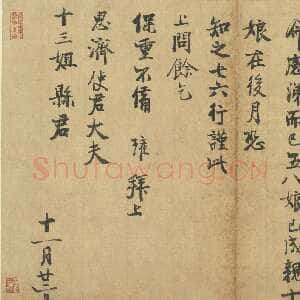 而已五八娘已成親十
娘在後月恐
知之七六行謹此
上問餘乞
保重不備 拜上
濟使君大夫
十三姐縣君
十一月廿
Shufawang.CN